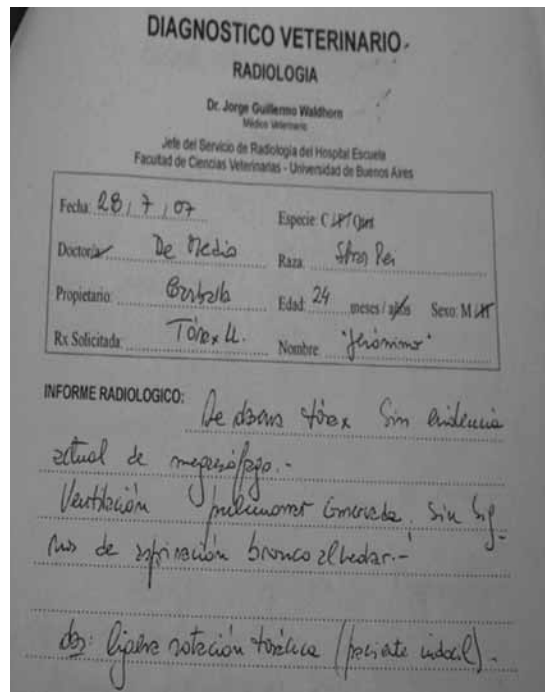 DIAGNOSTICO VETERINARIO
RADIOLOGIA
Dr. Jorge Guillermo Waldhorn
Médico Veterinario
Jefe del Servicio de Radiología del Hospital Escuela
Facultad de Ciencias Veterinarias - Universidad de Buenos Aires
Fecha: 28 / 7 / 07 Especie: C / F / Otros
Doctor/a De Medio Raza: Shar Pei
Propietario: Edad: 24 meses / años Sexo: M / H
Rx Solicitada: Tórax LL. Nombre "Jerónimo"
INFORME RADIOLOGICO: Se observa tórax sin evidencia
actual de megaesófago.-
Ventilación pulmonar conservada, sin sig-
nos de aspiración bronco alveolar.-
Obs: ligera rotación torácica (paciente indócil).-